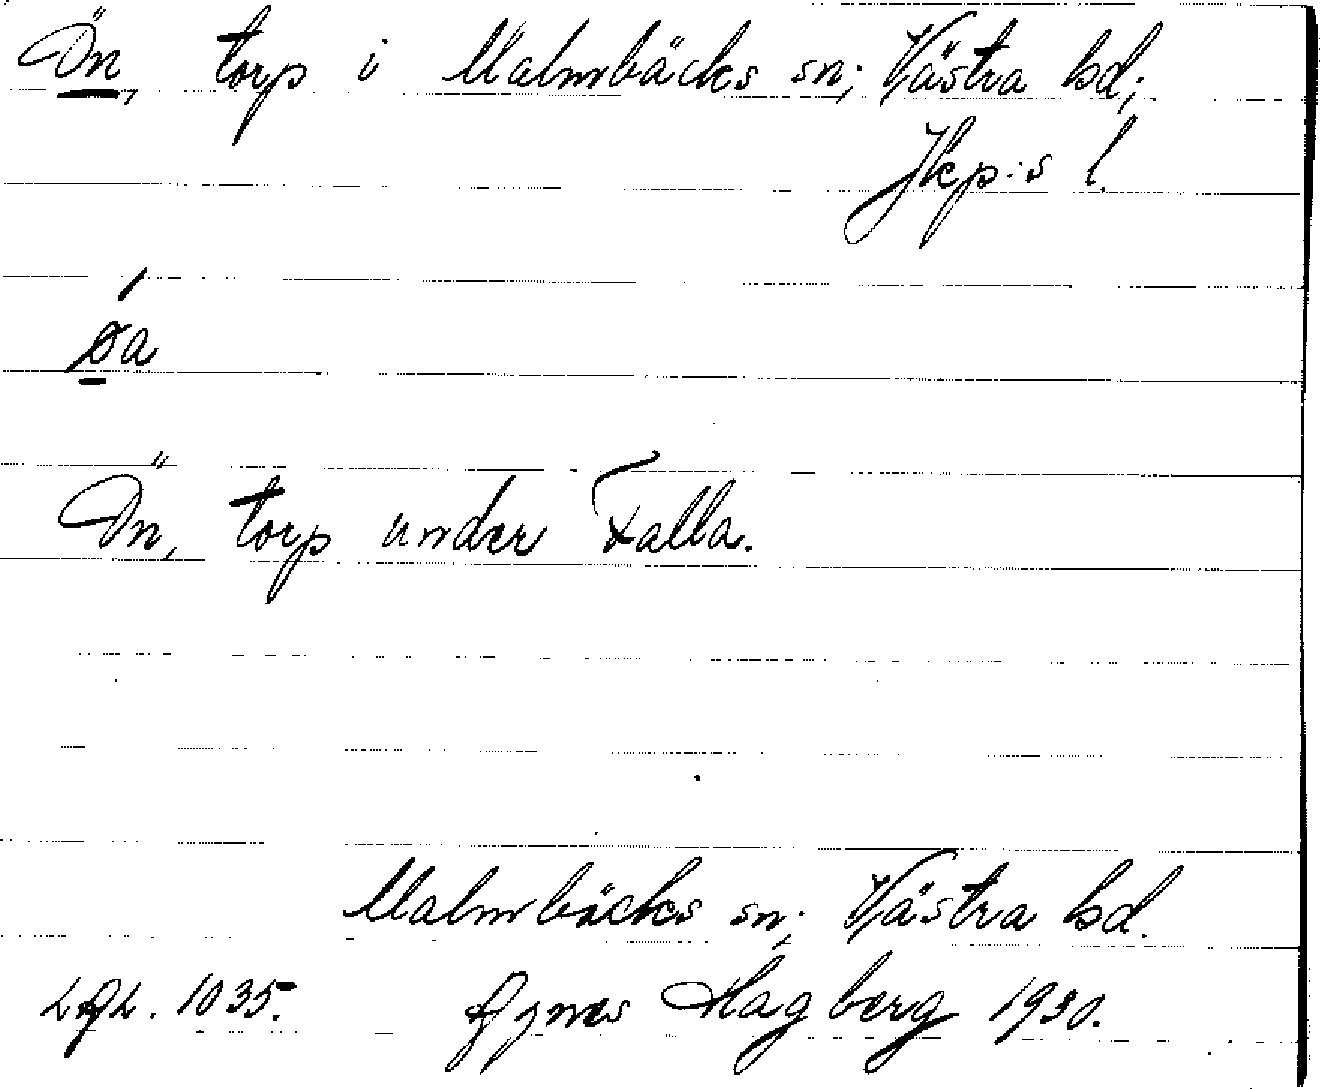 Ön, torp i Malmbäcks sn; Västra hd;
Jkp:s l.
Ön, torp under Falla.
Malmbäcks sn; Västra hd.
1035. Agnes Hagberg 1930.